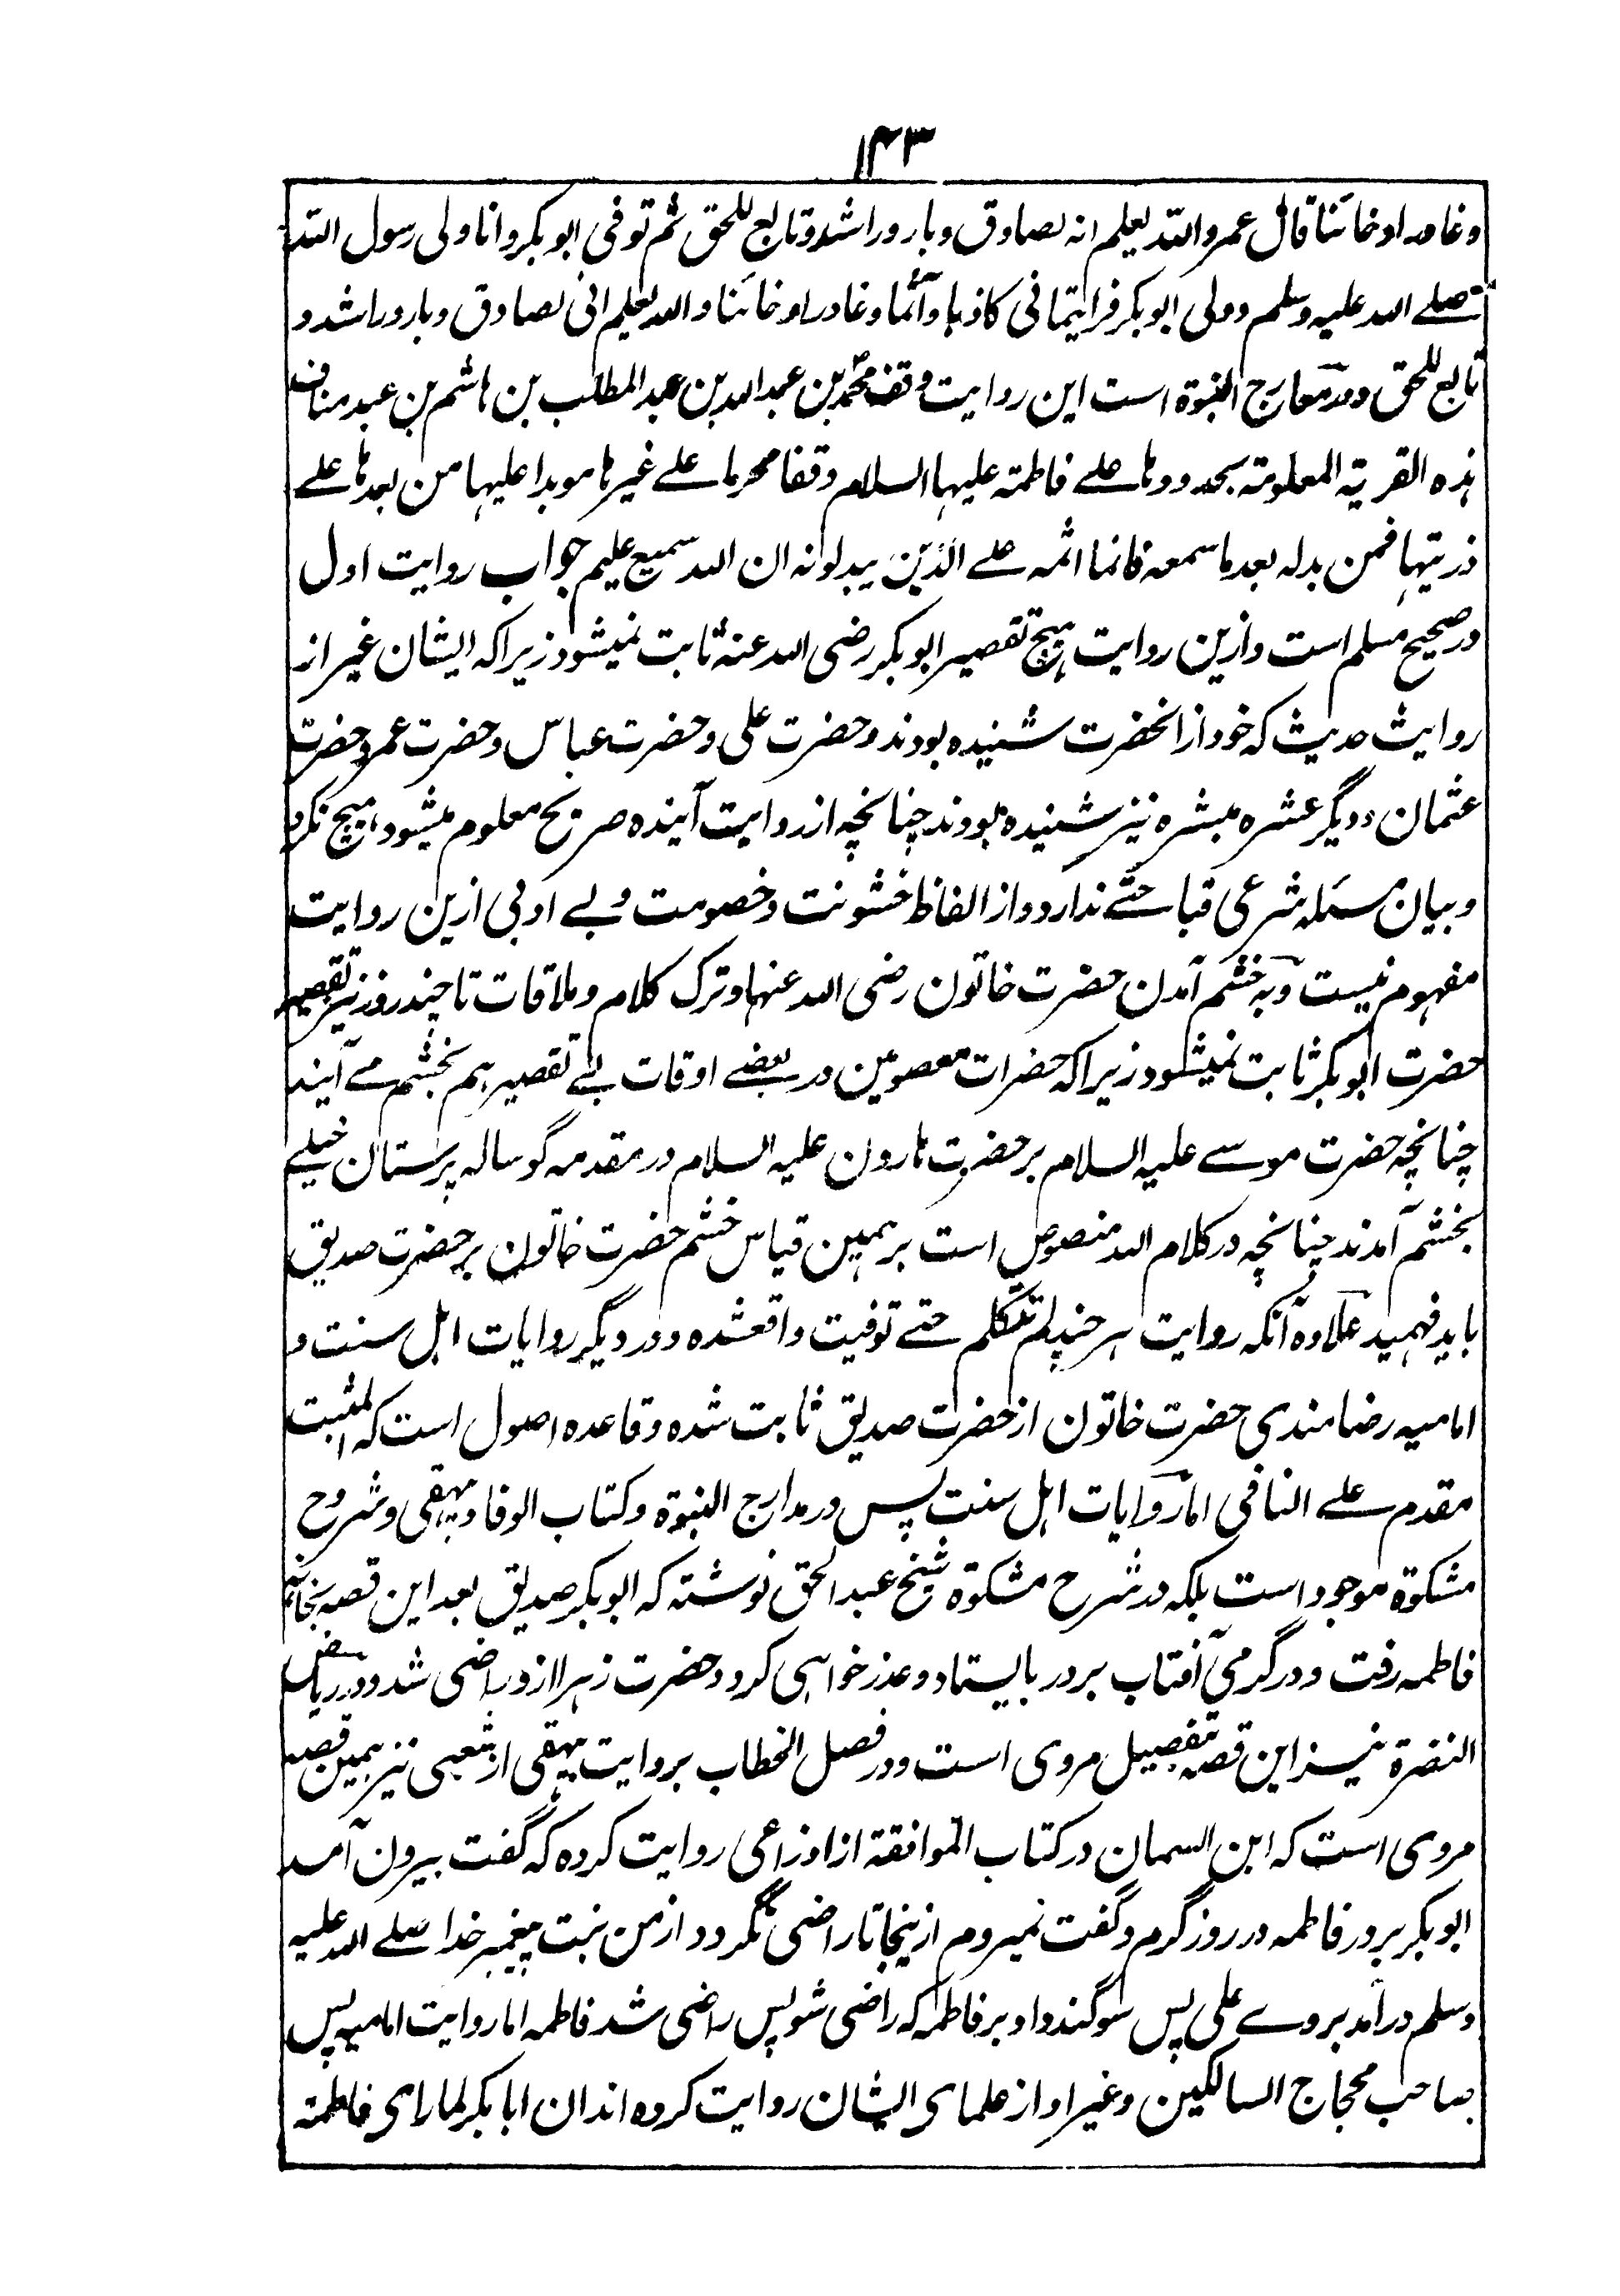 ۱۴۳
وغادرا وخائنا قال عمر واللّٰه یعلم انه لصادق وبار وراشد وتابع للحق ثم توفی ابوبکر وانا ولی رسول اللّٰه
صلے الله علیه وسلم و ولی ابوبکر فرأیتمانی کاذبا وآثما وغادرا وخائنا والله یعلم انی لصادق وبار وراشد و
تابع للحق ودر معارج النبوة است این روایت وقف محمد بن عبدالله بن عبد المطلب بن هاشم بن عبد مناف
هذه القریة المعلومة بحدودها علے فاطمة علیها السلام وقفا محرما علے غیرها موبدا علیها من بعدها علے
ذریتها فمن بدله بعد ما سمعه فانما اثمه علے الَّذِیْنَ یبدلونه ان الله سمیع علیم جواب روایت اول
در صحیح مسلم است وازین روایت هیچ تقصیر ابوبکر رضی الله عنه ثابت نمیشود زیراکه ایشان غیر از
روایت حدیث که خود از انحضرت شنیده بودند وحضرت علی وحضرت عباس وحضرت عمر وحضرت
عثمان ودیگر عشره مبشره نیز شنیده بودند چنانچه از روایت آینده صریح معلوم میشود هیچ نکرد
وبیان مسئله شرعی قباحتے ندارد واز الفاظ خشونت وخصومت وبے ادبی ازین روایت
مفهوم نیست وبه خشم آمدن حضرت خاتون رضی الله عنها وترک کلام وملاقات تا چند روز نیز تقصیر
حضرت ابوبکر ثابت نمیشود زیراکه حضرات معصومین در بعضے اوقات بے تقصیر هم بخشم مے آیند
چنانچه حضرت موسے علیه السلام بر حضرت هارون علیه السلام در مقدمه گوساله پرستان خیلے
بخشم آمدند چنانچه در کلام الله منصوص است بر همین قیاس خشم حضرت خاتون بر حضرت صدیق
باید فهمید علاوه آنکه روایت هر چند لم تتکلم حتے توفیت واقعشده ودر دیگر روایات اهل سنت و
امامیه رضامندی حضرت خاتون از حضرت صدیق ثابت شده وقاعده اصول است که المثبت
مقدم علے النافی اما روایات اهل سنت پس در مدارج النبوة وکتاب الوفا وبیهقی وشروح
مشکوة موجود است بلکه در شرح مشکوة شیخ عبد الحق نوشته که ابوبکر صدیق بعد این قصه بخانه
فاطمه رفت ودر گرمی آفتاب بر در بایستاد وعذر خواهی کرد وحضرت زهرا ازو راضی شد ودر ریاض
النضرة نیز این قصه بتفصیل مروی است ودر فصل الخطاب بروایت بیهقی از شعبی نیز همین قصه
مروی است که ابن السمان در کتاب الموافقة از اوزاعی روایت کرده که گفت بیرون آمد
ابوبکر بر در فاطمه در روز گرم وگفت نمیروم ازینجا تا راضی نگردد از من بنت پیغمبر خدا صلے الله علیه
وسلم درآمد بروے علی پس سوگند داد بر فاطمه که راضی شو پس راضی شد فاطمه اما روایت امامیه پس
صاحب محجاج السالکین وغیر او از علمای ایشان روایت کرده اند ان ابا بکر لما رای فاطمة